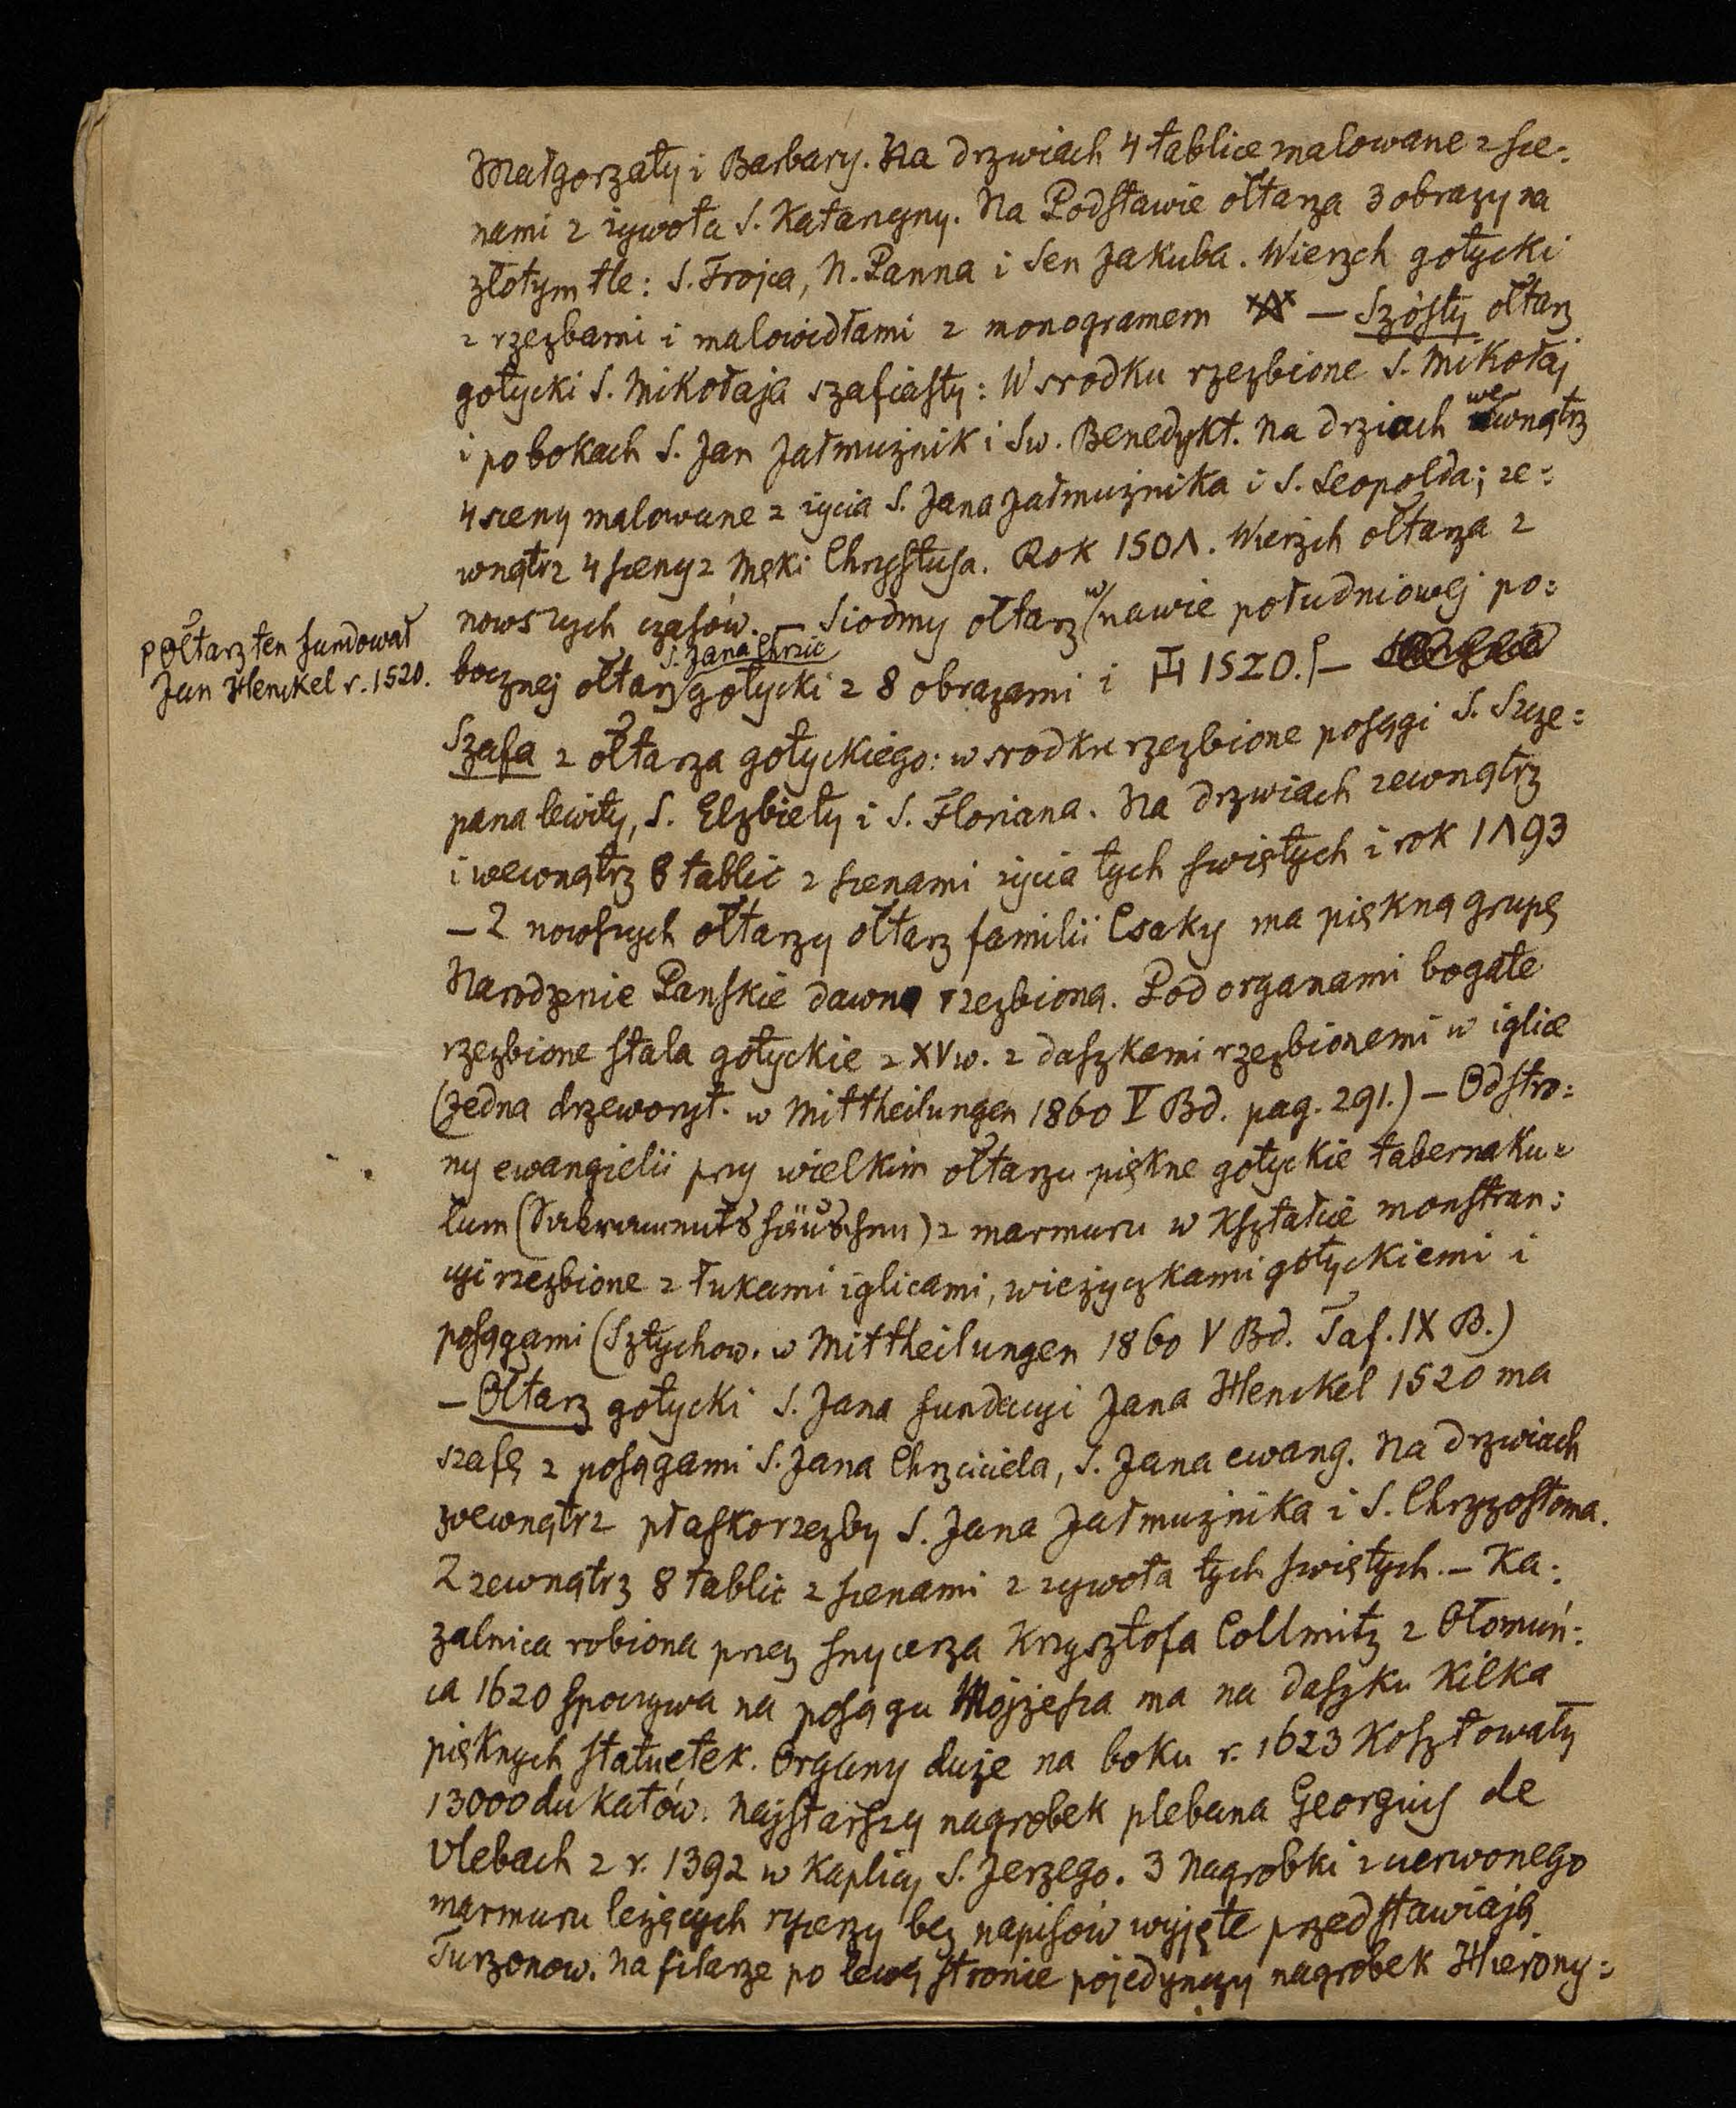 Małgorzaty i Barbary. Na drzwiach 4 tablice malowane z sce=
nami z zywota S. Katarzyny. Na Podstawie ołtarza 3 obrazy na
złotym tle: S. Trojca, N. Panna i Sen Jakuba. Wierzch gotycki
z rzezbami i malowidłami z monogramem — Szósty ołtarz
gotycki S. Mikołaja szafiasty: W srodku rzezbione S. Mikołaj
i po bokach S. Jan Jałmużnik i Sw. Benedykt. Na drziach wewnątrz
4 sceny malowane z życia S. Jana Jałmużnika i S. Leopolda; ze=
wnątrz 4 sceny z Męki Chrystusa. Rok 150Λ. Wierzch ołtarza z
nowszych czasów. — Siodmy ołtarz w nawie południowej po=
bocznej ołtarz S. Jana Chrzic gotycki z 8 obrazami i 1520. —
Połtarz ten fundował
Jan Henckel r. 1520.
Szafa z ołtarza gotyckiego: w srodku rzezbione posągi S. Szcze=
pana lewity, S. Elzbiety i S. Floriana. Na drzwiach zewnątrz
i wewnątrz 8 tablic z scenami życia tych swiętych i rok 1Λ93
— Z nowszych ołtarzy ołtarz familii Csaky ma piękną grupę
Narodzenie Panskie dawno rzezbioną. Pod organami bogate
rzezbione stala gotyckie z XV w. z daszkami rzezbionemi w iglice
(Jedna drzeworyt. w Mittheilungen 1860 V Bd. pag. 291.) — Od stro=
ny ewangielii przy wielkim ołtarzu piękne gotyckie tabernaku=
lum (Sakramentshäuschen) z marmuru w Kształcie monstran=
cyi rzezbione z łukami iglicami, wieżyczkami gotyckiemi i
posągami (Sztychow. w Mittheilungen 1860 V Bd. Taf. IX B.)
— Ołtarz gotycki S. Jana fundacyi Jana Henckel 1520 ma
szafę z posągami S. Jana Chrzciciela, S. Jana ewang. Na drzwiach
wewnątrz płaskorzezby S. Jana Jałmużnika i S. Chryzostoma.
Z zewnątrz 8 tablic z scenami z zywota tych swiętych. — Ka=
zalnica robiona przez snycerza Krzysztofa Collmitz z Ołomuń=
ca 1620 spoczywa na posągu Mojżesza ma na daszku Kilka
pięknych statuetek. Organy duże na boku r. 1623 Kosztowały
13000 dukatów. Najstarszy nagrobek plebana Georgius de
Vlebach z r. 1392 w Kaplicy S. Jerzego. 3 Nagrobki z czerwonego
marmuru leżących rycerzy bez napisów wyjęte przedstawiają
Turzonow. Na filarze po lewej stronie pojedynczy nagrobek Hierony=